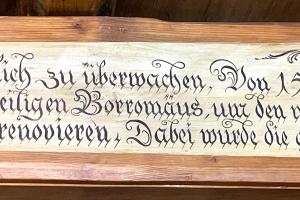 lich zu überwachen. Von 13
eiligen Borromäus, um den
renovieren. Dabei wurde die